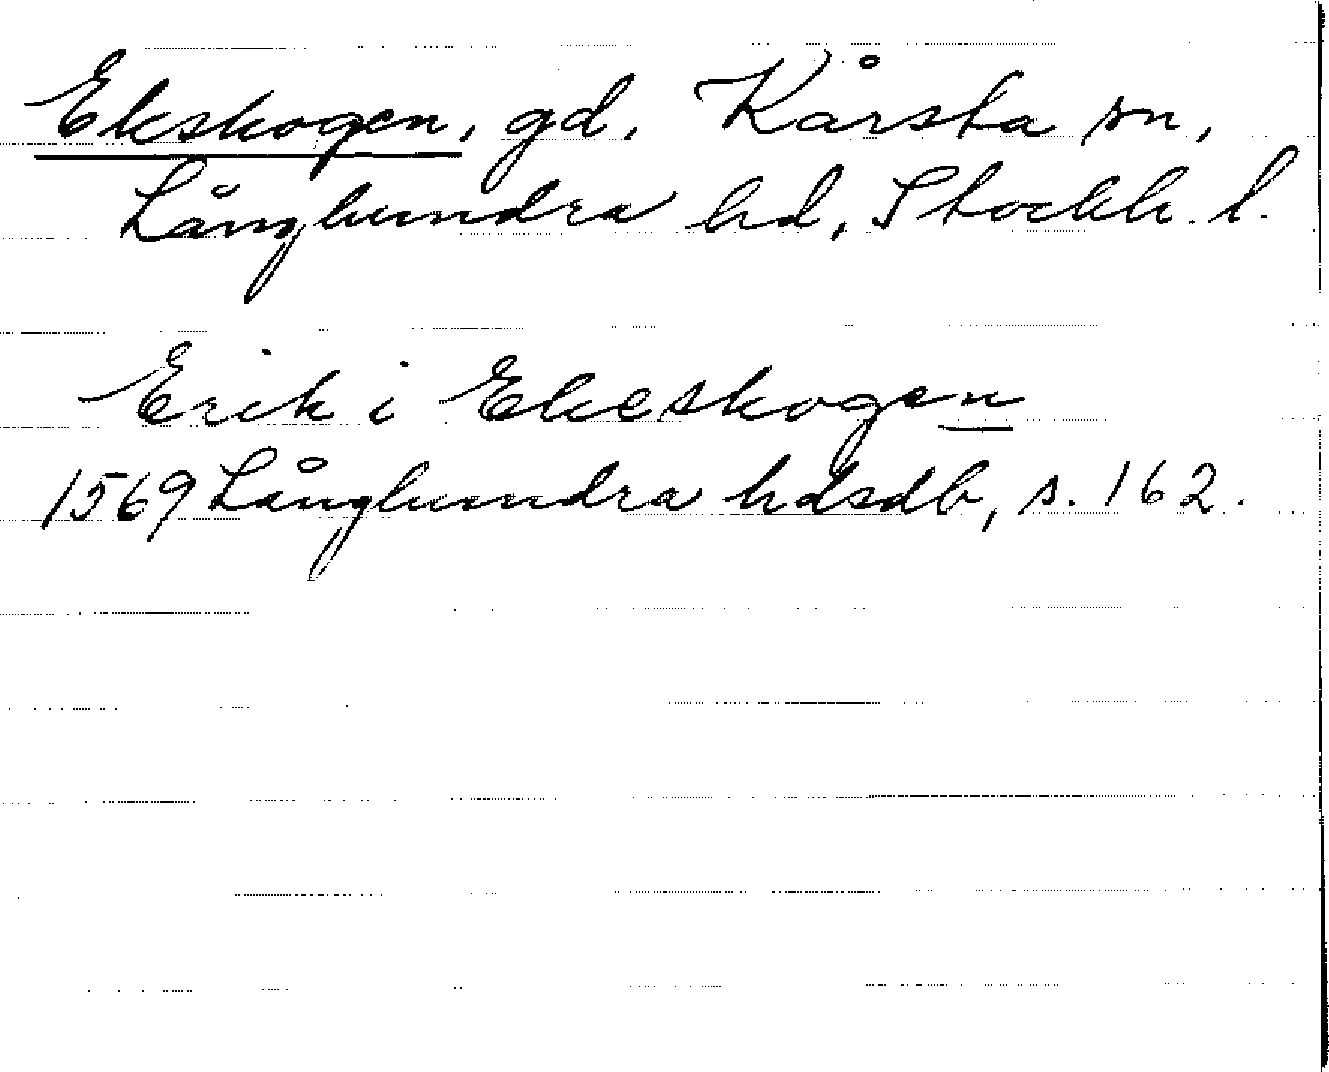 Ekskogen, gd, Kårsta sn,
Långhundra hd, Stockh. l.
Erik i Ekeskogen
1569 Långhundra hdsdb, s. 162.